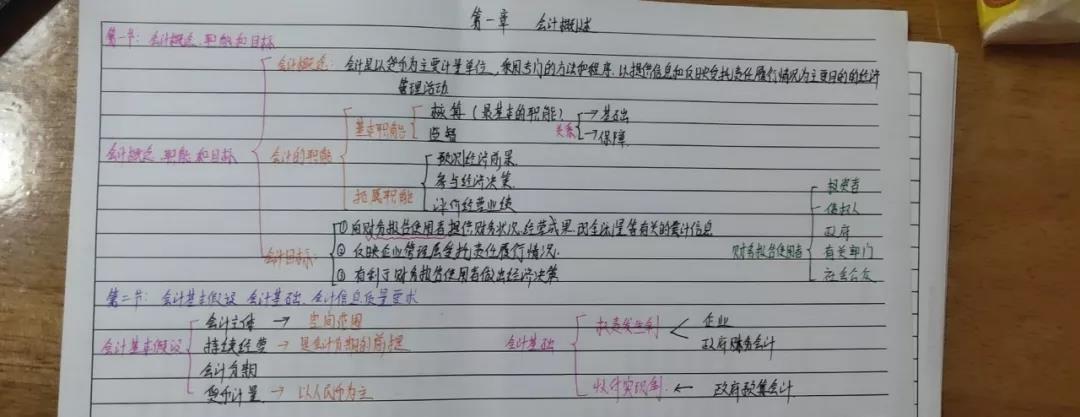 第一章 会计概述
第一节：会计概念、职能和目标
会计概念：会计是以货币为主要计量单位，采用专门的方法和程序，以提供信息和反映受托责任履行情况为主要目的的经济
管理活动
基本职能 核算（最基本的职能） 关系 →基础
监督 →保障
会计概念、职能和目标 会计的职能
拓展职能 预测经济前景
参与经济决策
评价经营业绩
会计目标： ①向财务报告使用者提供财务状况、经营成果、现金流量等有关的会计信息
②反映企业管理层受托责任履行情况
③有利于财务报告使用者做出经济决策
财务报告使用者 投资者
债权人
政府
有关部门
社会公众
第二节：会计基本假设、会计基础、会计信息质量要求
会计基本假设 会计主体 → 空间范围
持续经营 → 是会计分期的前提
会计分期
货币计量 → 以人民币为主
会计基础 权责发生制 企业
政府财务会计
收付实现制 ← 政府预算会计